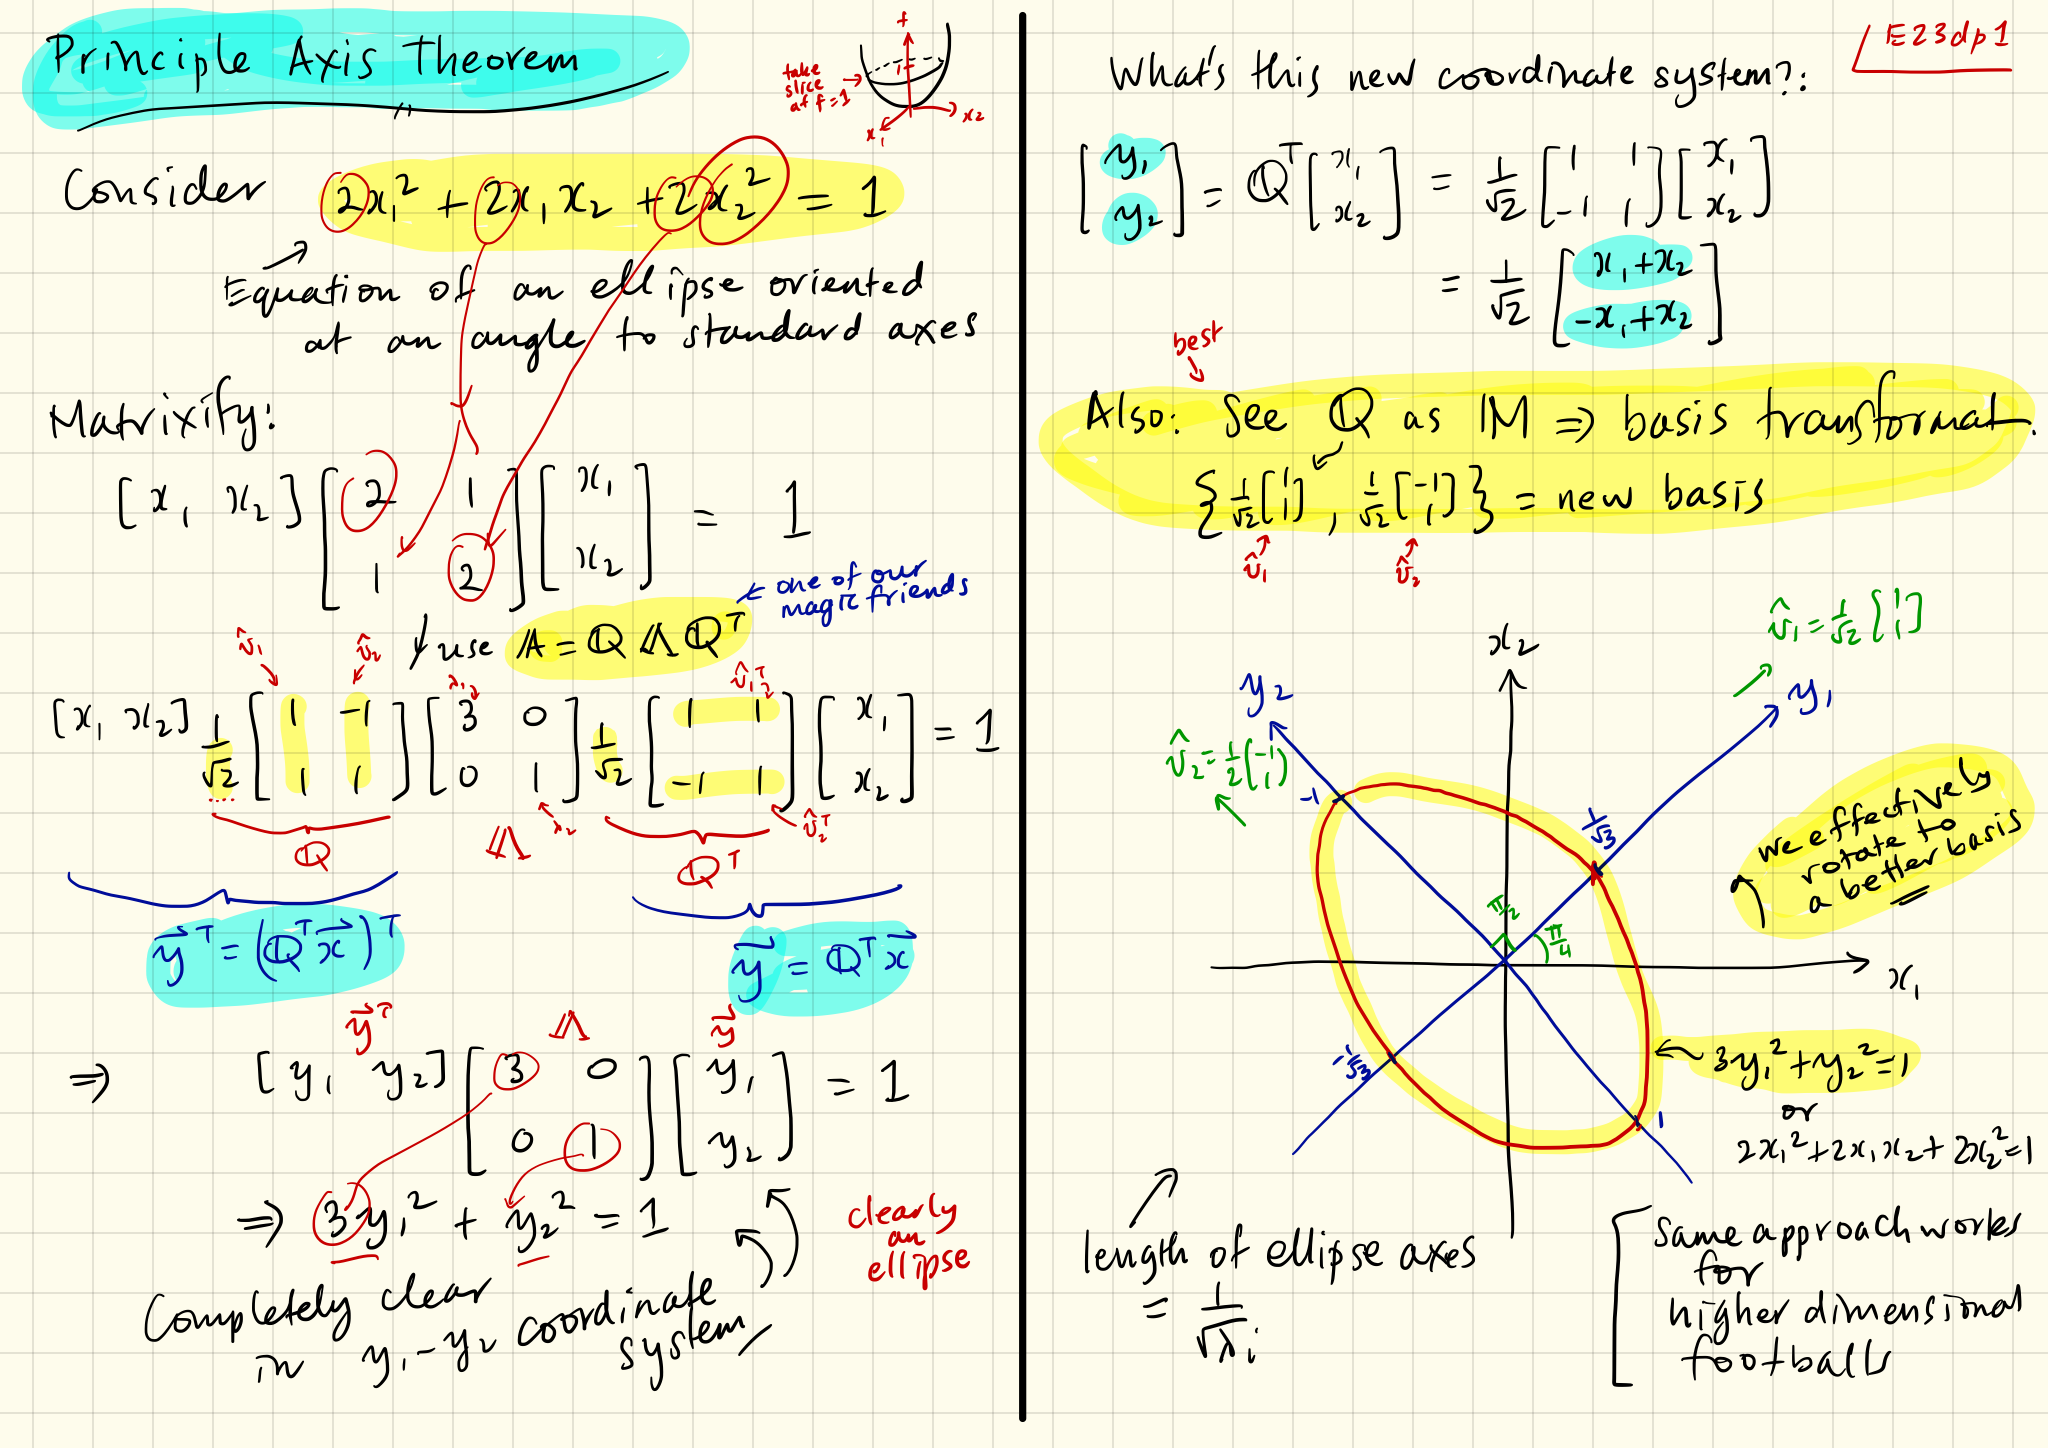 Principle Axis Theorem
take
slice
at f=1
f
1
x₁
x₂
Consider 2x₁² + 2x₁x₂ + 2x₂² = 1
Equation of an ellipse oriented
at an angle to standard axes
Matrixify:
[x₁ x₂] [2 1; 1 2] [x₁; x₂] = 1
use A = Q Λ Qᵀ
← one of our
magic friends
v̂₁ v̂₂ λ₁ v̂₁ᵀ
[x₁ x₂] 1/√2 [1 -1; 1 1] [3 0; 0 1] 1/√2 [1 1; -1 1] [x₁; x₂] = 1
λ₂ v̂₂ᵀ
Q Λ Qᵀ
y⃗ᵀ = (Qᵀx⃗)ᵀ
y⃗ = Qᵀx⃗
y⃗ᵀ Λ y⃗
⇒ [y₁ y₂] [3 0; 0 1] [y₁; y₂] = 1
⇒ 3y₁² + y₂² = 1
clearly
an
ellipse
Completely clear
in y₁-y₂ coordinate
system
E23dp1
What's this new coordinate system?:
[y₁; y₂] = Qᵀ [x₁; x₂] = 1/√2 [1 1; -1 1] [x₁; x₂]
= 1/√2 [x₁+x₂; -x₁+x₂]
best
Also: See Q as M ⇒ basis transformat.
{1/√2 [1; 1], 1/√2 [-1; 1]} = new basis
v̂₁ v̂₂
v̂₁ = 1/√2 [1; 1]
x₂
y₂
y₁
v̂₂ = 1/2 [-1; 1]
-1
1/√3
we effectively
rotate to
a better basis
π/2
π/4
x₁
-1/√3
1
3y₁² + y₂² = 1
or
2x₁² + 2x₁x₂ + 2x₂² = 1
length of ellipse axes
= 1/√λᵢ
same approach works
for
higher dimensional
footballs